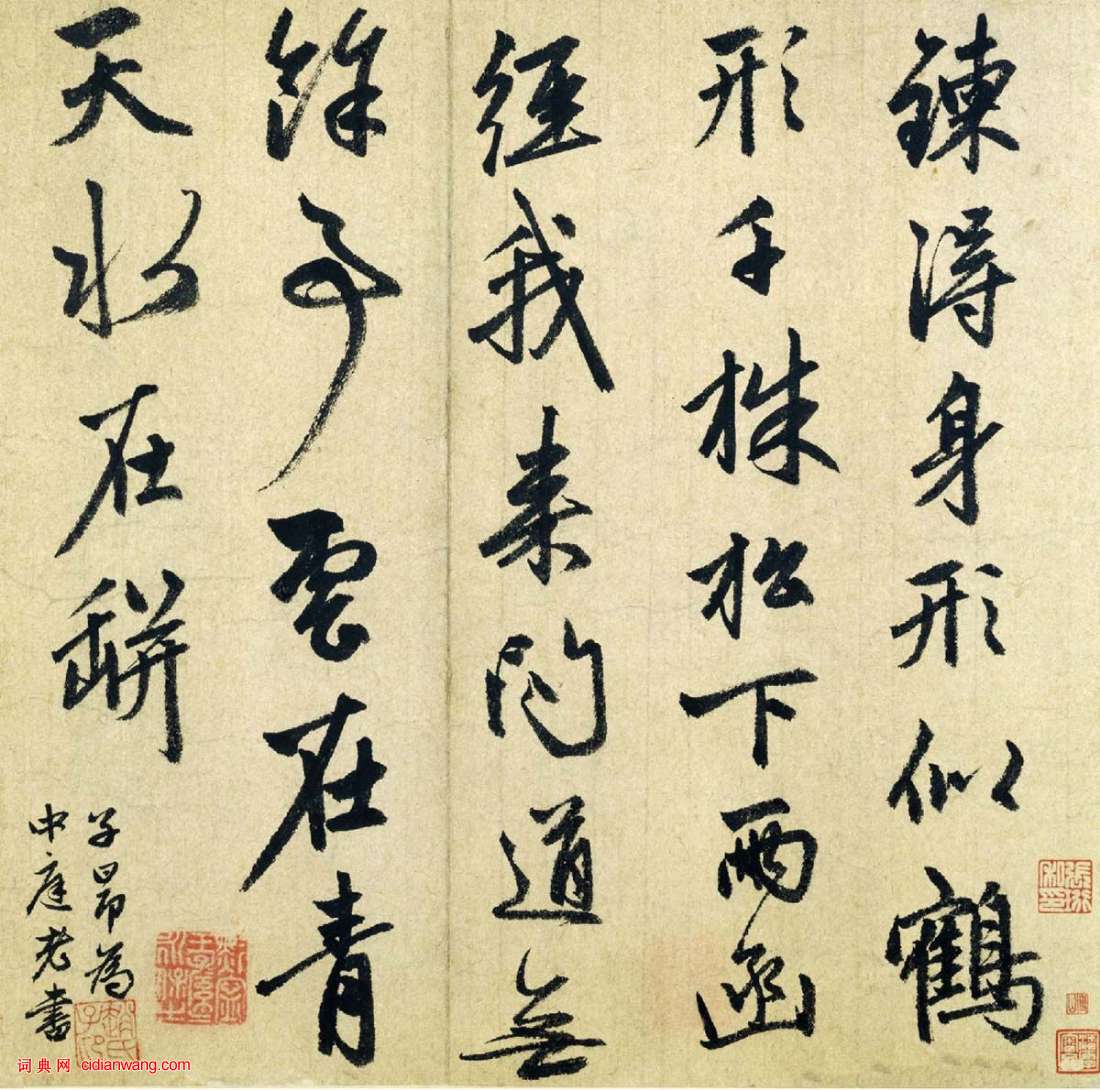 鍊得身形似鶴
形千株松下兩函
經我來問道無
餘事雲在青
天水在缾
子昂為
中庭老書
趙氏子印
词典网 cidianwang.com